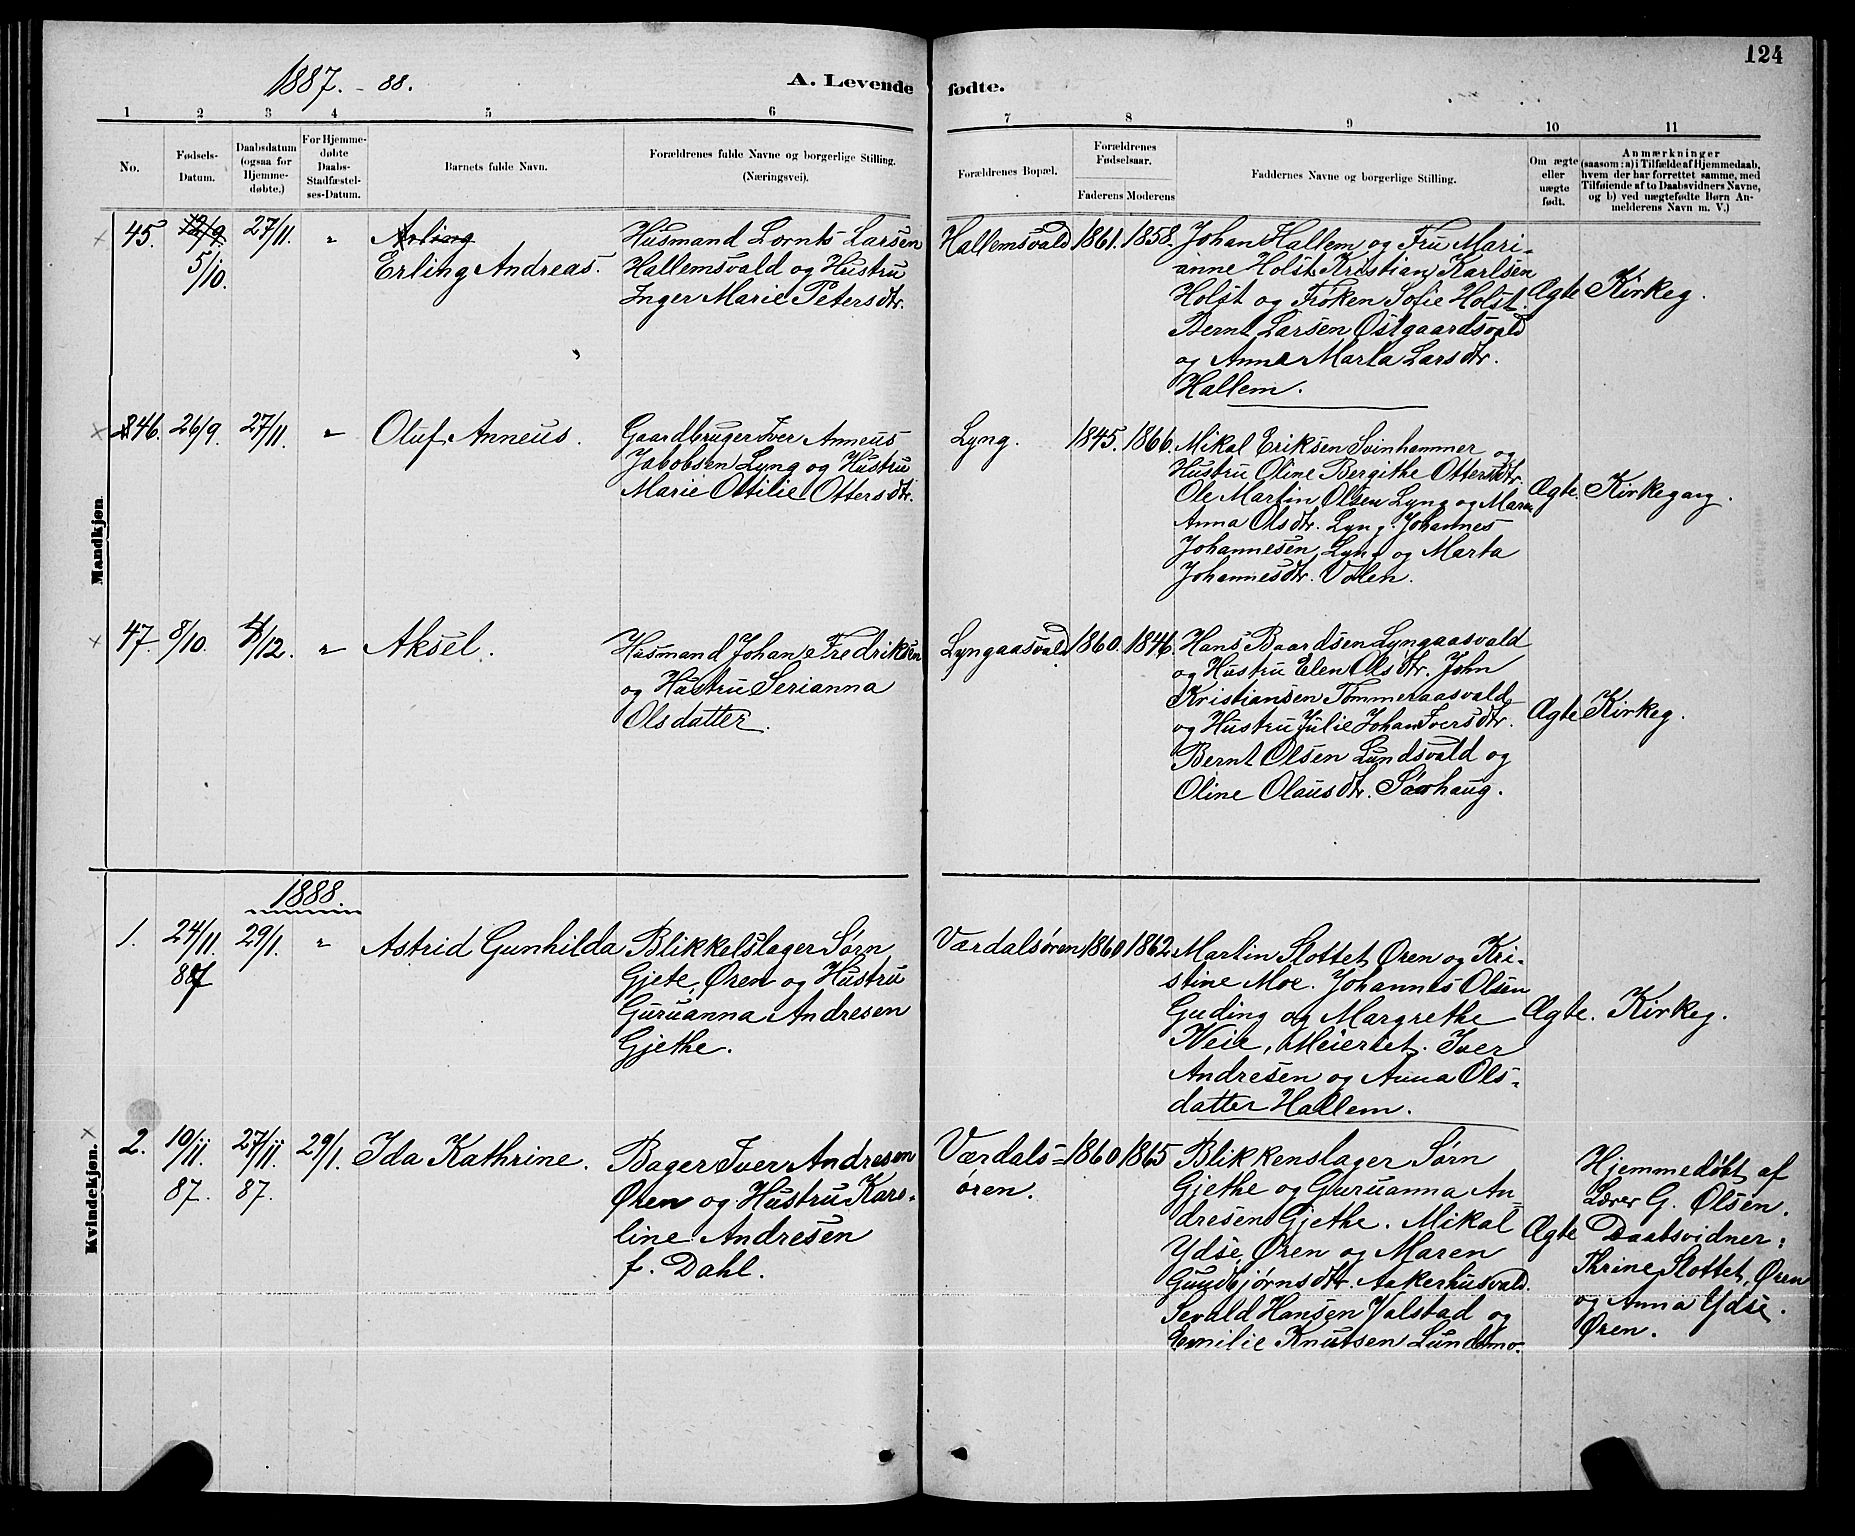 124
1887. - 88.
A. Levende fødte.
1 2 3 4 5 6 7 8 9 10 11
No.
Fødsels-
Datum.
Daabsdatum
(ogsaa for
Hjemme-
døbte.)
For Hjemme-
døbte
Daabs-
Stadfæstel-
ses-Datum.
Barnets fulde Navn.
Forældrenes fulde Navne og borgerlige Stilling.
(Næringsvei).
Forældrenes Bopæl.
Forældrenes
Fødselsaar.
Faderens Moderens
Faddernes Navne og borgerlige Stilling.
Om ægte
eller
uægte
født.
Anmærkninger
(saasom: a) i Tilfælde af Hjemmedaab,
hvem der har forrettet samme, med
Tilføiende af to Daabsvidners Navne,
og b) ved uægtefødte Børn An-
melderens Navn m. V.)
Mandkjøn
45.
12/9
5/10.
27/11.
"
Erling Andreas.
Husmand Lornts Larsen
Hallemsvald og Hustru
Inger Marie Petersdtr.
Hallemsvald
1861.
1858.
Johan Hallem og Fru Mari-
anne Holst. Kristian Karlsen
Holst og Frøken Sofie Holst.
Bernt Larsen Østgaardsvald
og Anna Marta Larsdtr.
Hallem.
Ægte
Kirkeg.
46.
26/9.
27/11.
"
Oluf Anneus.
Gaardbruger Iver Anneus
Jakobsen Lyng og Hustru
Marie Ottilie Ottersdtr.
Lyng.
1845.
1866.
Mikal Eriksen Svinhammer og
Hustru Oline Bergithe Ottersdtr.
Ole Martin Olsen Lyng og Maren
Anna Olsdtr. Lyng. Johannes
Johannesen Lyng og Marta
Johannesdtr. Volen.
Ægte.
Kirkegang.
47.
8/10.
4/12.
"
Aksel.
Husmand Johan Fredriksen
og Hustru Serianna
Olsdatter.
Lyngaasvald
1860.
1846.
Hans Baardsen Lyngaasvald
og Hustru Elen Olsdtr. John
Kristiansen Tømmeraasvald
og Hustru Julie Johan Iversdtr.
Bernt Olsen Lundsvald og
Oline Olausdtr. Sørhaug.
Ægte
Kirkeg.
Kvindekjøn.
1888.
1.
24/11
87
29/1.
"
Astrid Gunhilda
Blikkelslager Sørn
Gjete, Øren og Hustru
Guruanna Andresen
Gjethe.
Værdalsøren
1860
1862
Martin Slottet, Øren og Kri-
stine Moe. Johannes Olsen
Guding og Margrethe
Veie, Meieriet. Iver
Andresen og Anna Ols-
datter Hallem.
Ægte.
Kirkeg.
2.
19/11
87.
27/11
87.
29/1.
Ida Kathrine.
Bager Iver Andresen
Øren og Hustru Karo-
line Andresen
f. Dahl.
Værdals-
øren.
1860
1865
Blikkenslager Sørn
Gjethe og Guruanna An-
dresen Gjethe. Mikal
Ydse, Øren og Maren
Gundbjørnsdtr. Aakerhusvald.
Sevald Hansen Valstad og
Emilie Knutsen Lundsmo.
Ægte
Hjemmedøbt af
Lærer G. Olsen.
Daabsvidner:
Thrine Slottet, Øren
og Anna Ydse,
Øren.